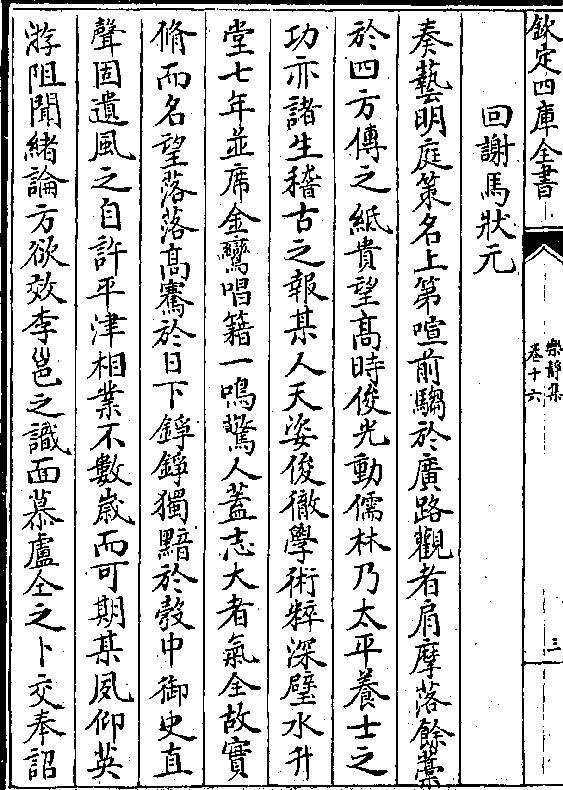 欽定四庫全書
樂靜集
卷十六
三
回謝馬狀元
奏藝明庭策名上第喧前騶於廣路觀者肩摩落餘藁
於四方傳之紙貴望高時俊光動儒林乃太平養士之
功亦諸生稽古之報某人天姿俊徹學術粹深璧水升
堂七年並席金鑾唱籍一鳴驚人蓋志大者氣全故實
脩而名望落落高騫於日下錚錚獨黯於彀中御史直
聲固遺風之自許平津相業不數歲而可期某夙仰英
游阻聞緒論方欲效李邕之識面慕盧仝之卜交奉詔